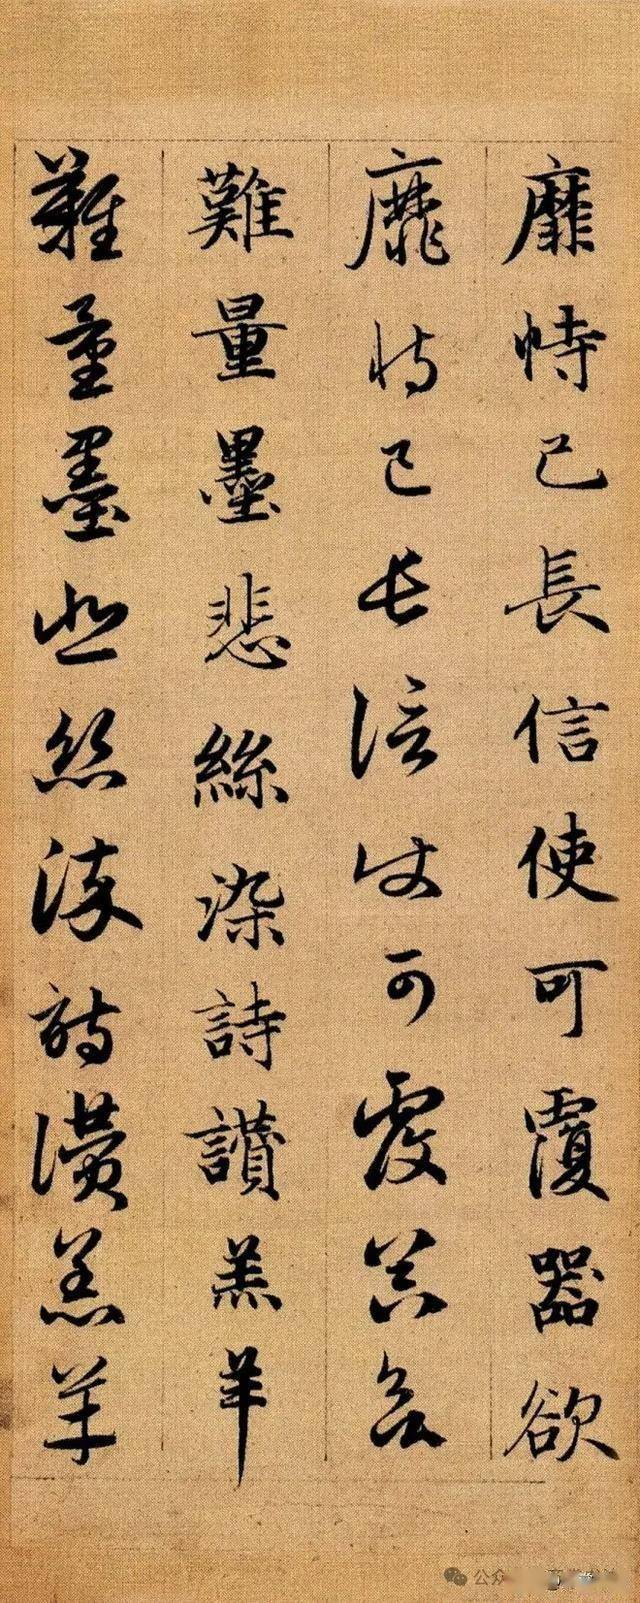 靡恃己長信使可覆器欲
靡恃己長信使可覆器欲
難量墨悲絲染詩讚羔羊
難量墨悲絲染詩讚羔羊
公众